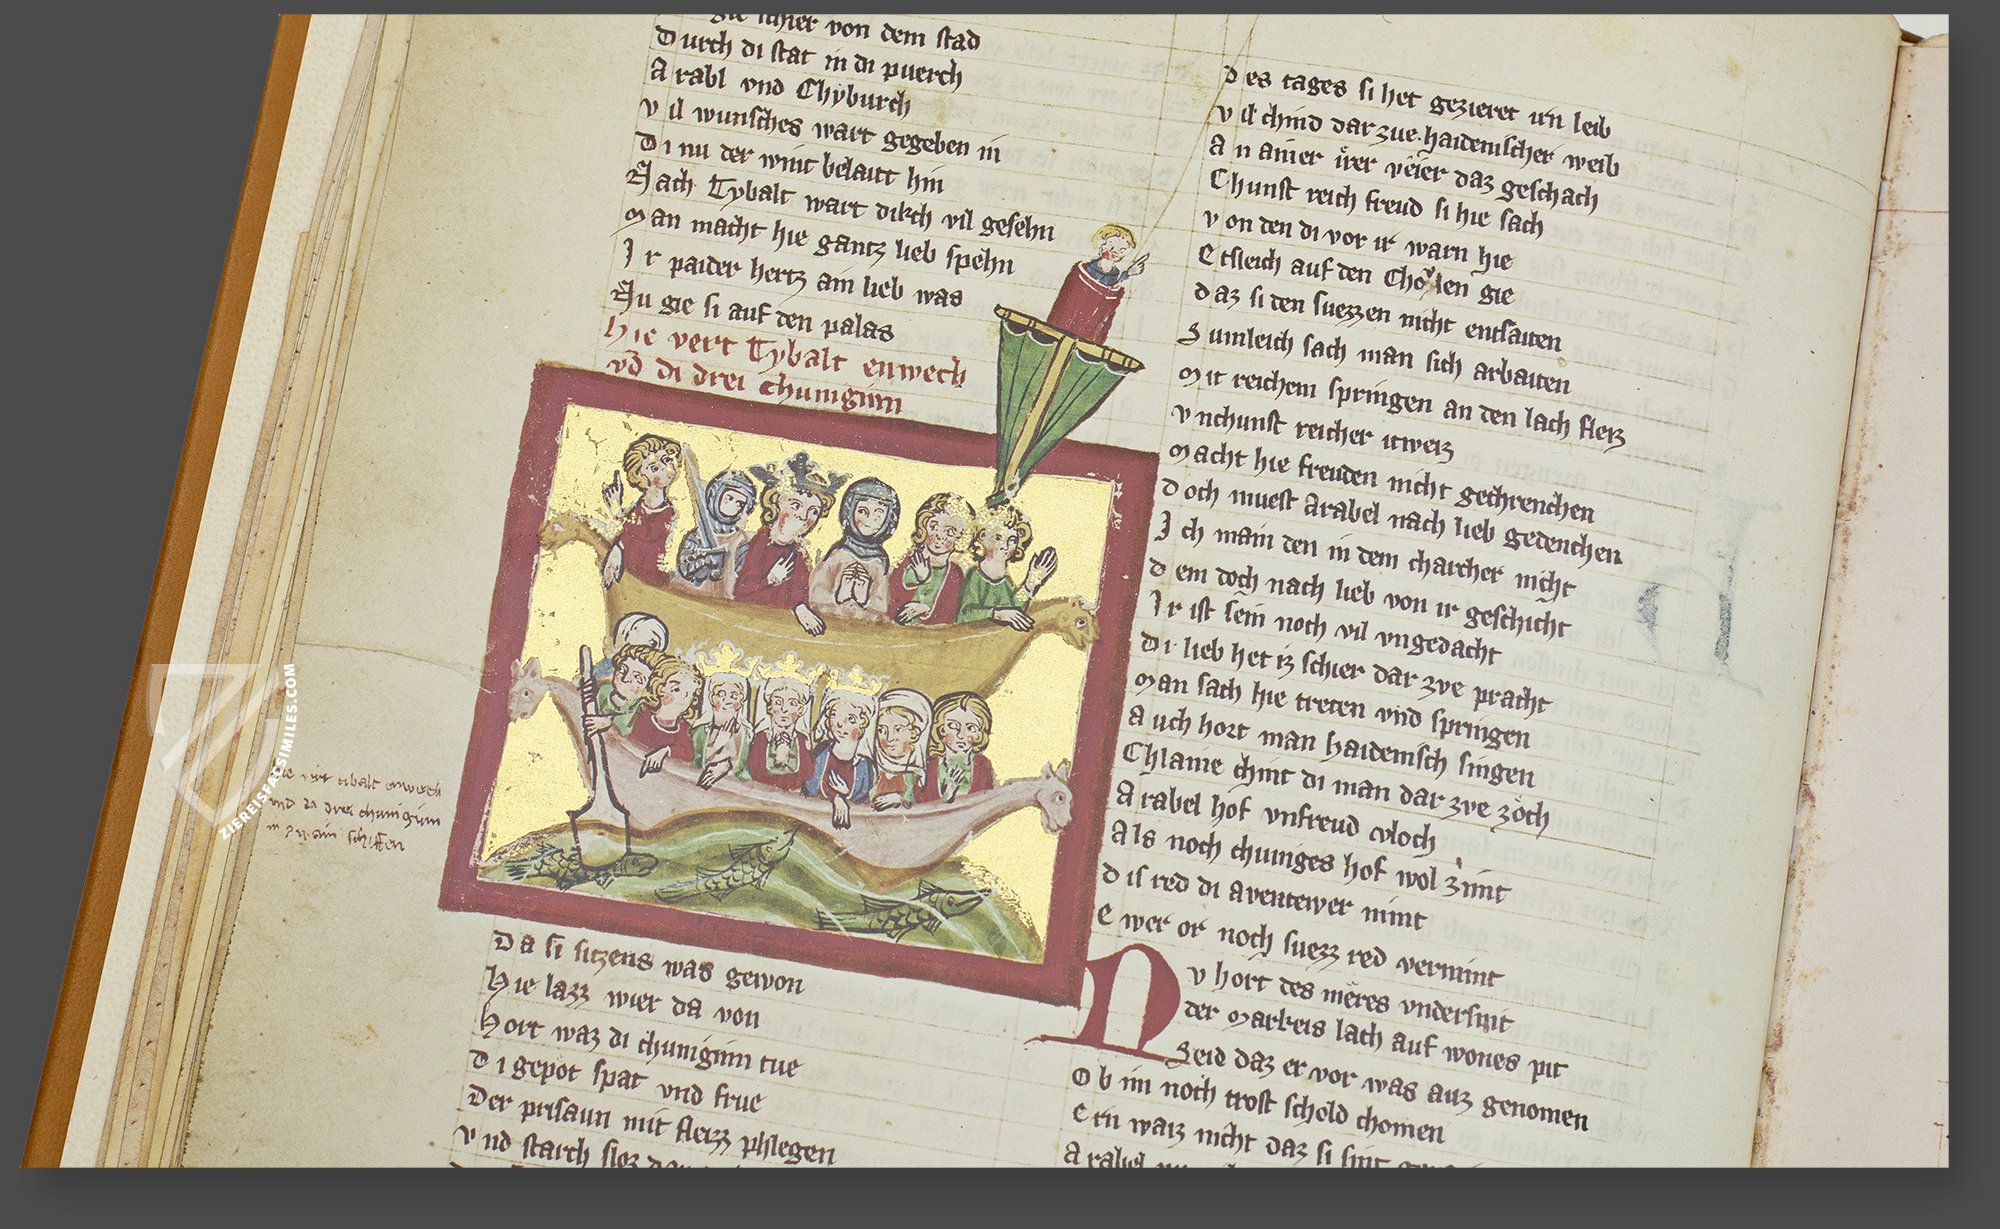 schier von dem stad
Durch di stat in di puerch
Arabl vnd Chyburch
Vil wunsches wart gegeben in
Di nu der wint belaitt hin
Nach Tybalt wart dikch vil gesehn
Man macht hie gantz lieb spehn
Ir paider hertz ain lieb was
Nu gie si auf den palas
Hie vert Tybalt enwech
vnd di drei chuniginn
Da si sitzens was gewon
Hie lazz wier da von
Hort waz di chuniginn tue
Di gepot spat vnd frue
Der prisaun mit flezz phlegen
Vnd starch
hie vert tibalt enwech
vnd di drei chuniginn
in zwain schiffen
Des tages si het gezieret irn leib
Vil chind dar zue haidenischer weib
An ainer irer veier daz geschach
Chunst reich freud si hie sach
Von den di vor ir warn hie
Etsleich auf den Cholen gie
Daz si den suezzen nicht entsaiten
Sumleich sach man sich arbaiten
Mit reichem springen an den lach fletz
Vnchunst reicher itweiz
Macht hie freuden nicht gechrenchen
Doch muest Arabel nach lieb gedenchen
Ich main den in dem charcher nicht
Dem doch nach lieb von ir geschicht
Ir ist sein noch vil vngedacht
Di lieb het iz schier dar zve pracht
Man sach hie treten vnd springen
Auch hort man haidenisch singen
Chlaine chint di man dar zve zoch
Arabel hof vnfreud vloch
Als noch chuniges hof wol zimt
Dis red di aventewer nimt
Ewer or noch suezz red vernimt
Nv hort des meres vndersint
der Markeis lach auf wones pit
Seid daz er vor was auz genomen
Ob im noch trost schold chomen
Ern waiz nicht daz si sint
Arabel
ZIEREISFACSIMILES.COM